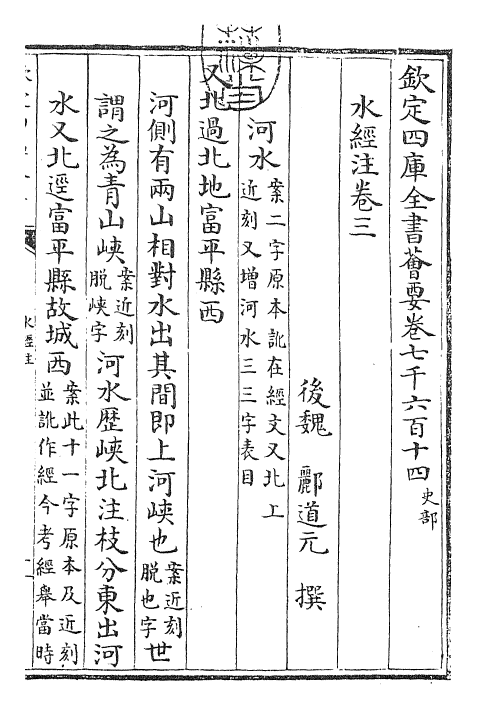 欽定四庫全書薈要卷七千六百十四 史部
水經注卷三
後魏 酈道元 撰
河水 案二字原本訛在經文又北上近刻又增河水三三字表目
又北過北地富平縣西
河側有兩山相對水出其間即上河峽也 案近刻脱也字 世
謂之為青山峽 案近刻脱峽字 河水歷峽北注枝分東出河
水又北逕富平縣故城西 案此十一字原本及近刻並訛作經今考經舉當時
水經注